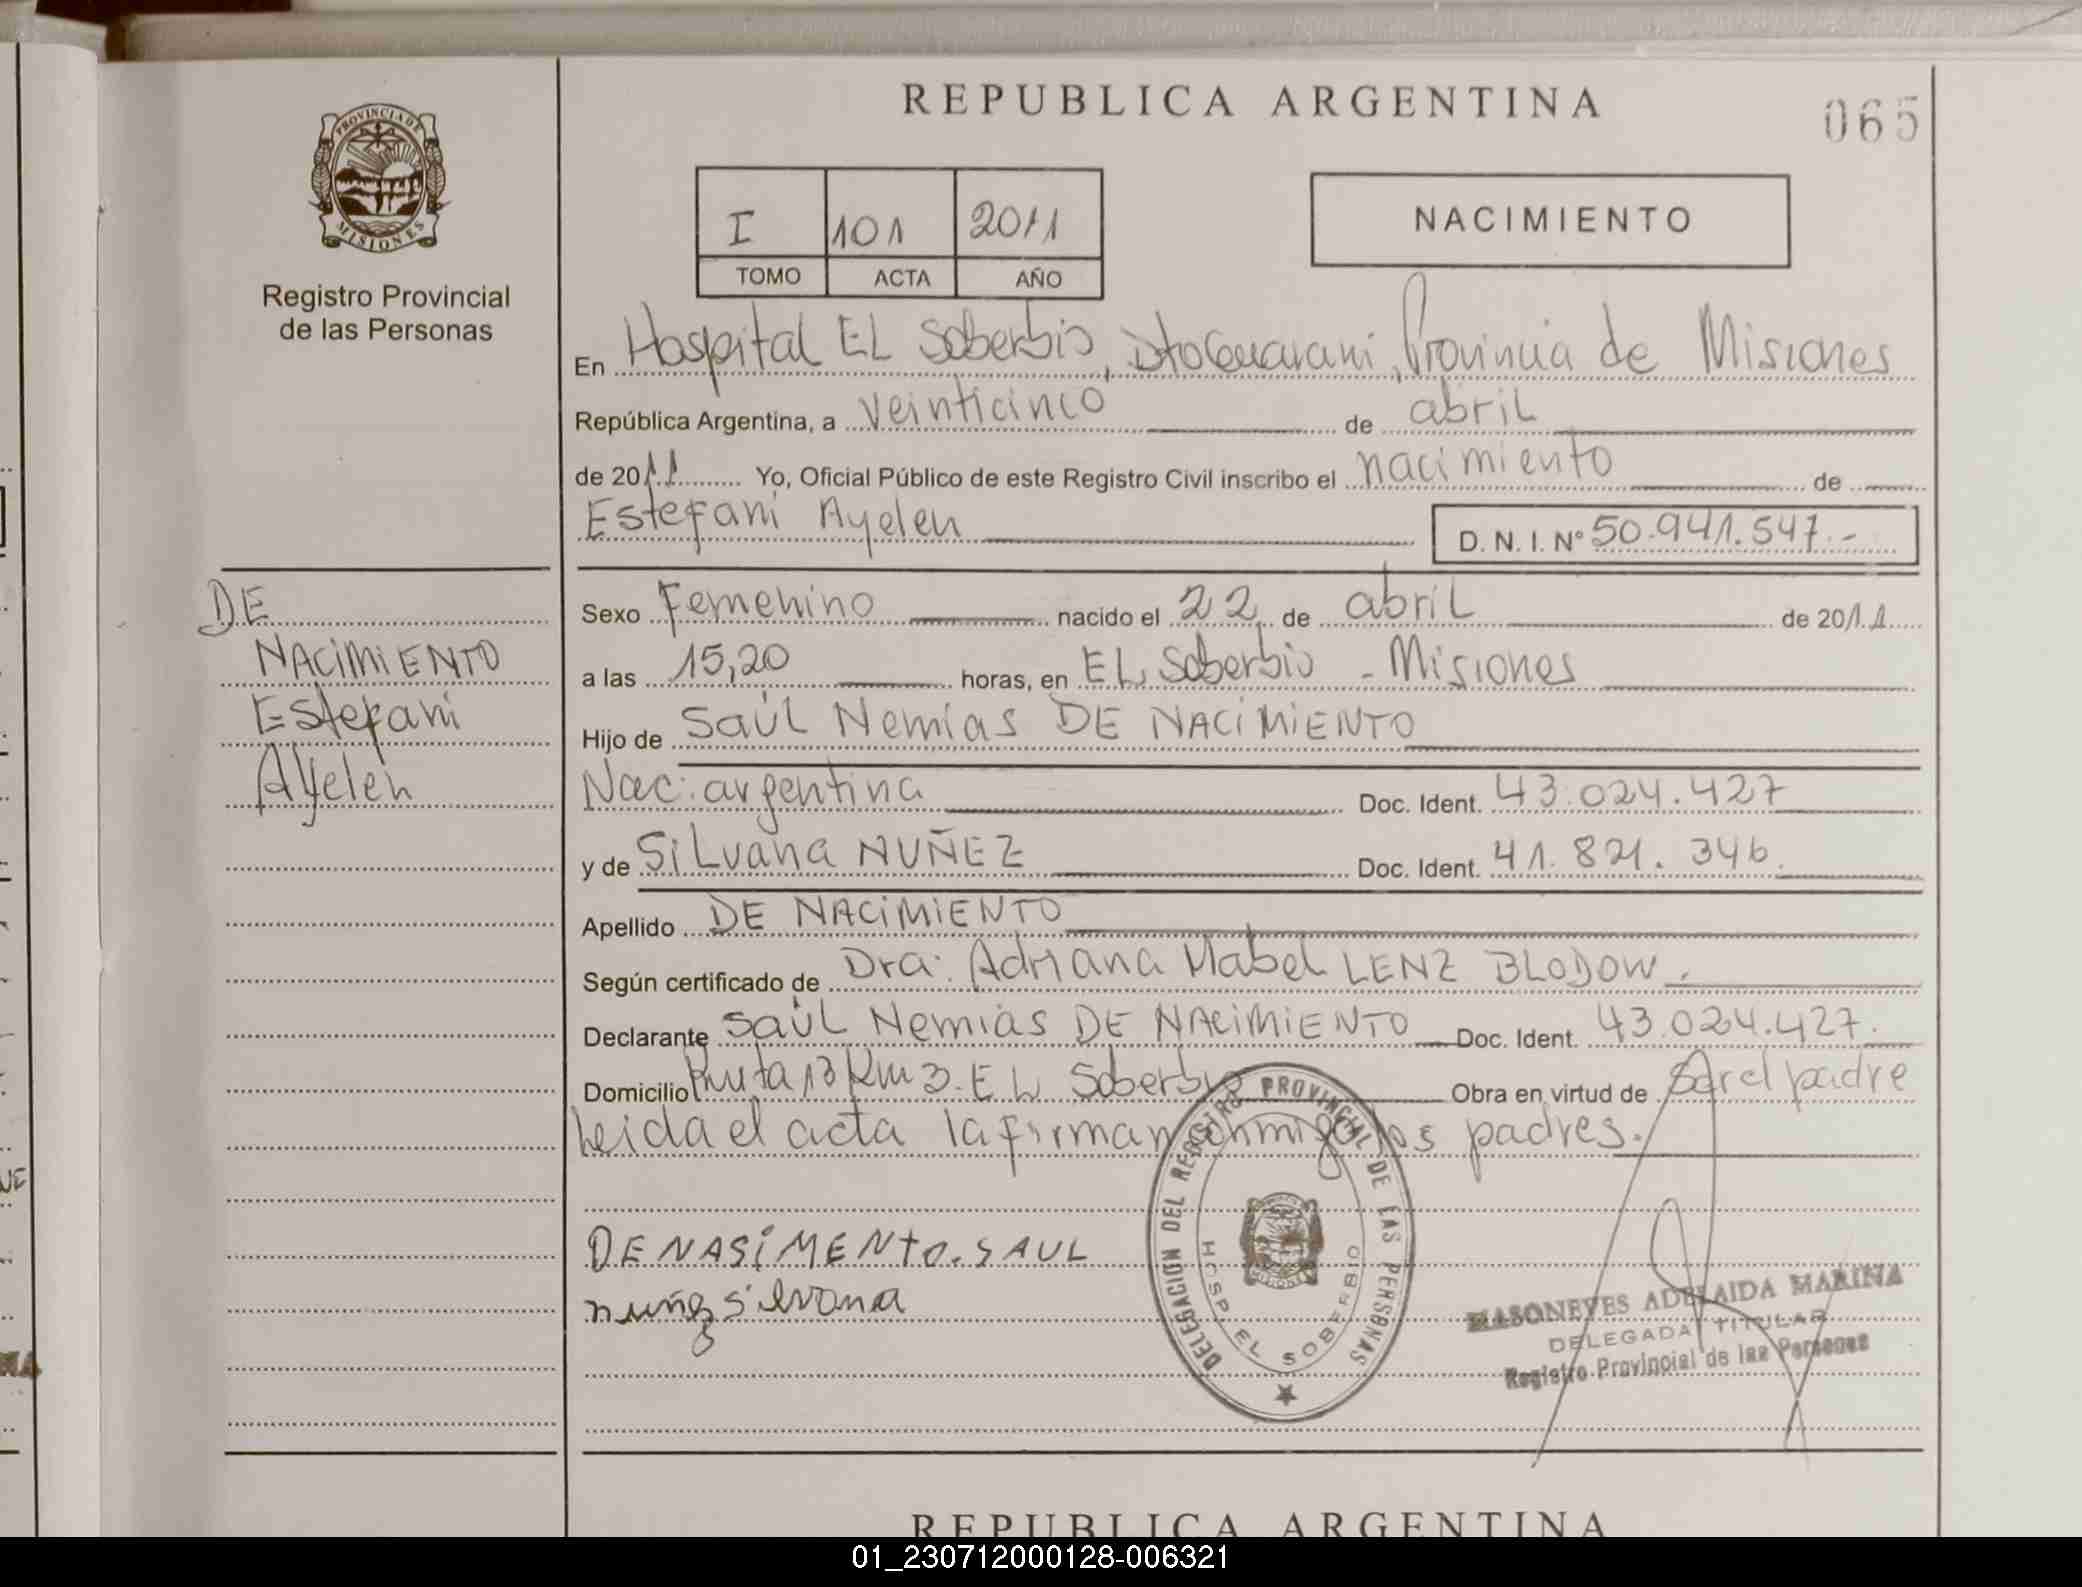 REPUBLICA ARGENTINA
065
PROVINCIA DE
MISIONES
Registro Provincial
de las Personas
I 101 2011
TOMO ACTA AÑO
NACIMIENTO
En Hospital EL Soberbio, Dto Guarani, Provincia de Misiones
República Argentina, a veinticinco de abril
de 2011 Yo, Oficial Público de este Registro Civil inscribo el nacimiento de
Estefani Ayelen
D. N. I. N° 50.941.547.-
DE
NACIMIENTO
Estefani
Ayelen
Sexo Femenino nacido el 22 de abril de 2011
a las 15,20 horas, en EL Soberbio - Misiones
Hijo de Saúl Nemias DE NACIMIENTO
Nac: argentina Doc. Ident. 43.024.427
y de Silvana NUÑEZ Doc. Ident. 41.821.346.
Apellido DE NACIMIENTO
Según certificado de Dra. Adriana Mabel LENZ BLODOW.
Declarante Saúl Nemias DE NACIMIENTO Doc. Ident. 43.024.427.
Domicilio Ruta 13 Km 3. EL Soberbio Obra en virtud de Ser el padre
Leida el acta la firman conmigo los padres.
DE NASIMENTO. SAUL
nuñez silvana
DELEGACION DEL REGISTRO PROVINCIAL DE LAS PERSONAS
HOSP. EL SOBERBIO
MASONEVES ADELAIDA MARINA
DELEGADA TITULAR
Registro Provincial de las Personas
REPUBLICA ARGENTINA
01_230712000128-006321